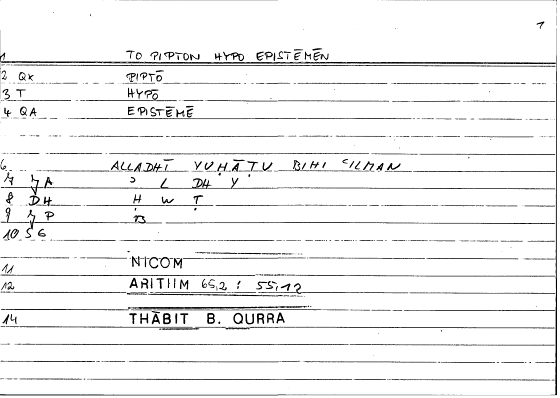 1
1 TO PIPTON HYPO EPISTĒMĒN
2 QX PIPTŌ
3 T HYPŌ
4 QA EPISTĒMĒ
6 ALLADHĪ YUḤĀṬU BIHI ʿILMAN
7 A ʾ L DH Y
8 DH Ḥ W Ṭ
9 P B
10 SG
11 NICOM
12 ARITIIM 65,2 : 55,12
14 THĀBIT B. QURRA